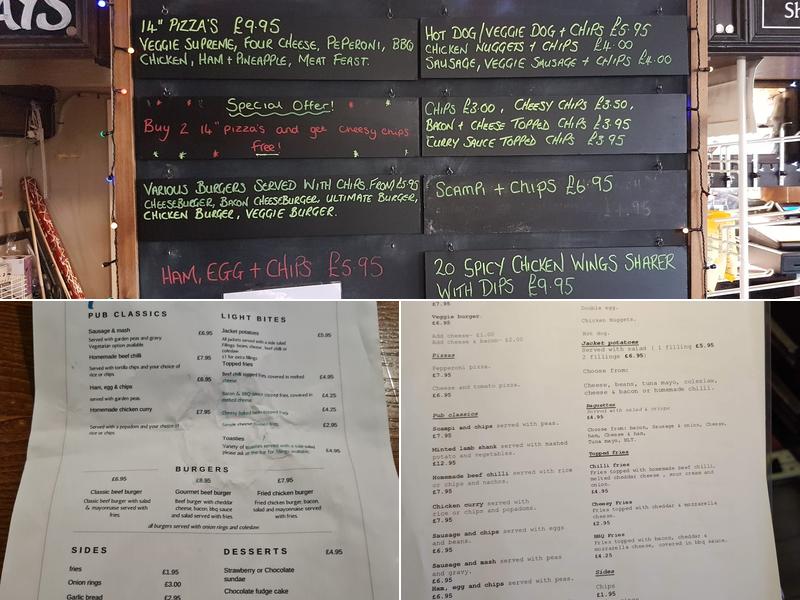 AYS
14" PIZZA'S £9.95
VEGGIE SUPREME, FOUR CHEESE, PEPERONI, BBQ
CHICKEN, HAM + PINEAPPLE, MEAT FEAST.
Special Offer!
Buy 2 14" pizza's and get cheesy chips
free!
VARIOUS BURGERS SERVED WITH CHIPS FROM £5.95
CHEESEBURGER, BACON CHEESEBURGER, ULTIMATE BURGER,
CHICKEN BURGER, VEGGIE BURGER.
HAM, EGG + CHIPS £5.95
HOT DOG/VEGGIE DOG + CHIPS £5.95
CHICKEN NUGGETS + CHIPS £4.00
SAUSAGE, VEGGIE SAUSAGE + CHIPS £4.00
CHIPS £3.00, CHEESY CHIPS £3.50,
BACON + CHEESE TOPPED CHIPS £3.95
CURRY SAUCE TOPPED CHIPS £3.95
SCAMPI + CHIPS £6.95
20 SPICY CHICKEN WINGS SHARER
WITH DIPS £9.95
SH
PUB CLASSICS
Sausage & mash £6.95
Served with garden peas and gravy
Vegetarian option available
Homemade beef chilli £7.95
Served with tortilla chips and your choice of
rice or chips
Ham, egg & chips £6.95
served with garden peas.
Homemade chicken curry £7.95
Served with a popadom and your choice of
rice or chips
LIGHT BITES
Jacket potatoes £5.95
All jackets served with a side salad
Fillings: beans, cheese, beef chilli or
coleslaw
£1 for extra fillings
Topped fries
Beef chilli topped fries covered in melted
cheese £4.95
Bacon & BBQ sauce topped fries, covered in melted
cheese. £4.25
Cheesy baked bean topped fries £4.25
Simple cheese topped fries £2.95
Toasties
Variety of toasties served with a side salad,
please ask at the bar for fillings available. £4.95
BURGERS
£6.95
Classic beef burger
Classic beef burger with salad
& mayonnaise served with
fries.
£8.95
Gourmet beef burger
Beef burger with cheddar
cheese, bacon, bbq sauce
and salad served with fries.
£7.95
Fried chicken burger
Fried chicken burger, bacon,
salad and mayonnaise served
with fries.
all burgers served with onion rings and coleslaw.
SIDES
fries £1.95
Onion rings £3.00
Garlic bread £2.95
DESSERTS £4.95
Strawberry or Chocolate
sundae
Chocolate fudge cake
£7.95
Veggie burger.
£6.95
Add cheese- £1.00
Add cheese & bacon- £2.00
Pizzas
Pepperoni pizza.
£7.95
Cheese and tomato pizza.
£6.95
Pub classics
Scampi and chips served with peas.
£7.95
Minted lamb shank served with mashed
potato and vegetables.
£12.95
Homemade beef chilli served with rice
or chips and nachos.
£7.95
Chicken curry served with
rice or chips and popadoms.
£7.95
Sausage and chips served with eggs
and beans.
£6.95
Sausage and mash served with peas
and gravy.
£6.95
Ham, egg and chips served with peas.
£6.95
Double egg.
Chicken Nuggets.
Hot dog.
Jacket potatoes
Served with salad ( 1 filling £5.95
2 fillings £6.95)
Choose from:
Cheese, beans, tuna mayo, coleslaw,
cheese & bacon or homemade chilli.
Baguettes
Served with salad & crisps
£4.95
Choose from: bacon, Sausage & onion, Cheese,
Ham, Cheese & ham,
Tuna mayo, BLT.
Topped fries
Chilli fries
Fries topped with homemade beef chilli,
melted cheddar cheese , sour cream and
onion.
£4.95
Cheesy Fries
Fries topped with cheddar & mozzarella
cheese.
£2.95
BBQ Fries
Fries topped with bacon, cheddar &
mozzarella cheese, covered in bbq sauce.
£4.25
Sides
Chips
£1.95